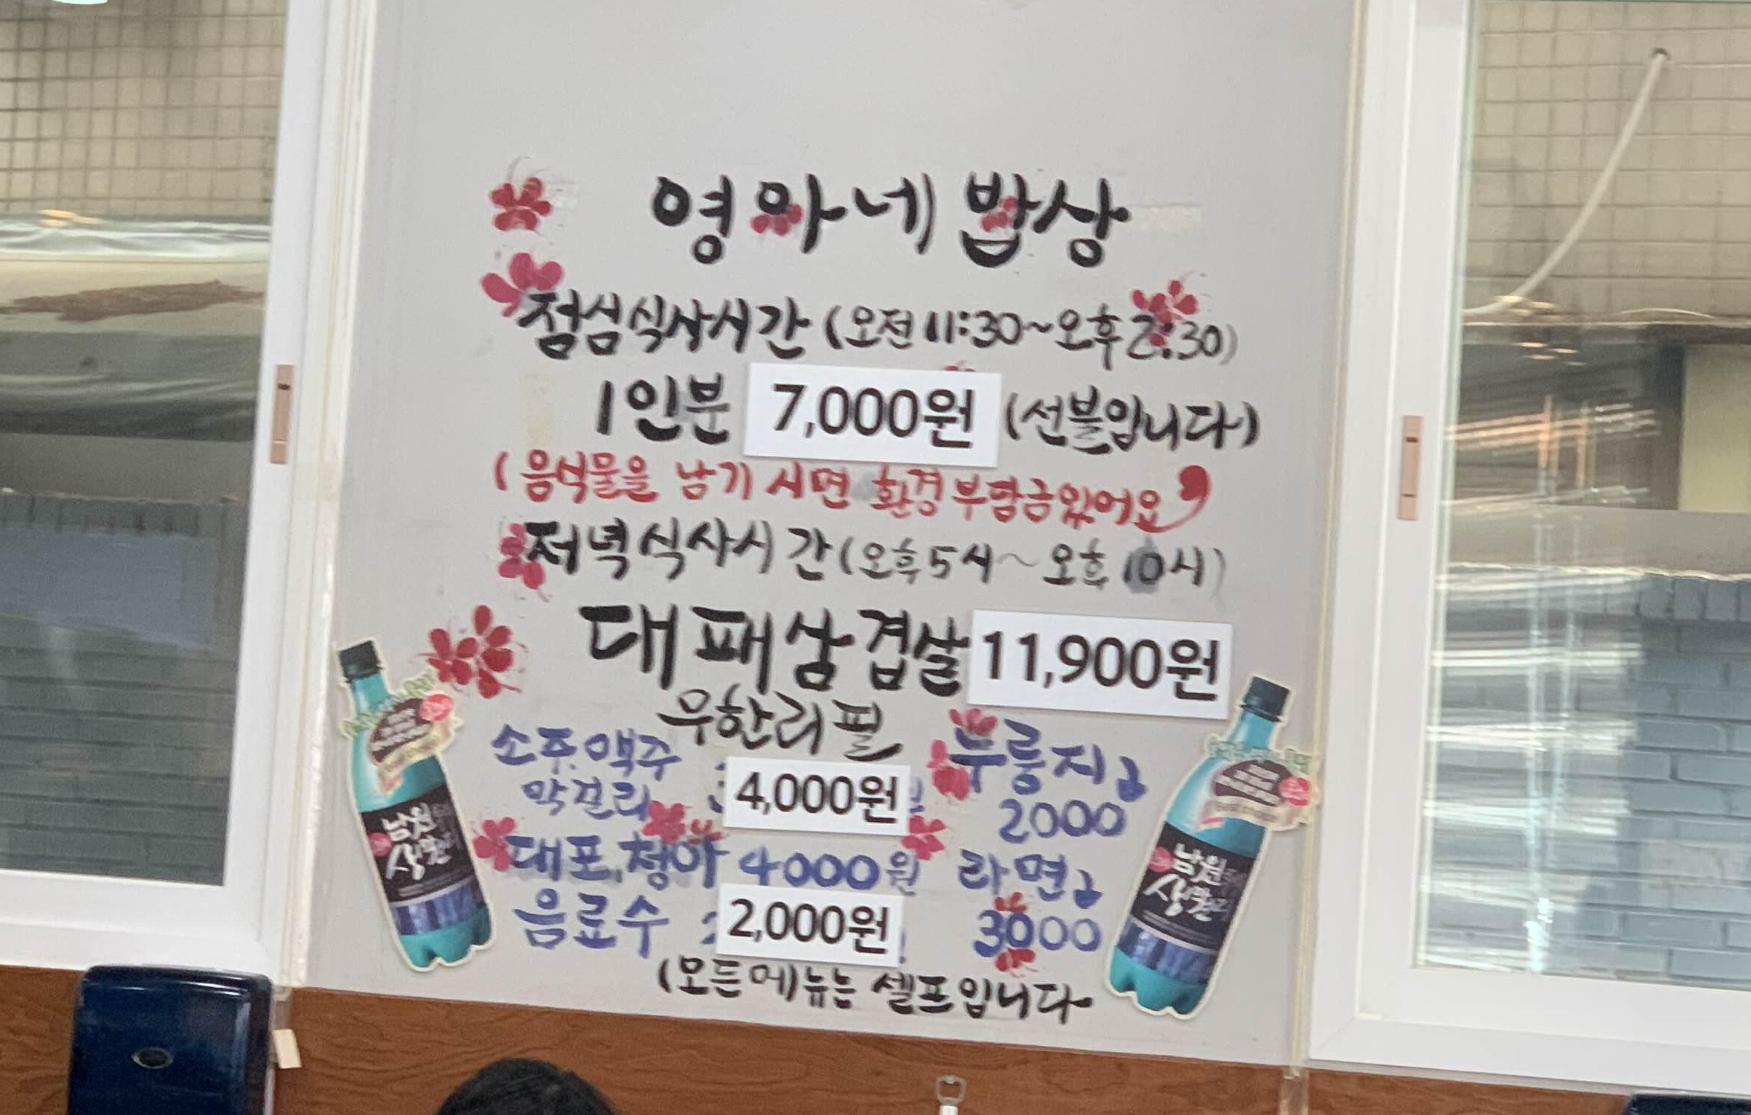 영아네 밥상
점심식사시간 (오전 11:30~오후 2:30)
1인분 7,000원 (선불입니다)
(음식물을 남기시면 환경부담금있어요)
저녁식사시간 (오후 5시~오후 10시)
대패삼겹살 11,900원
무한리필
소주.맥주
막걸리 4,000원
누룽지
2000
대포,청하 4000원
라면
3000
음료수 2,000원
(모든메뉴는 셀프입니다
남원
생막걸리
남원
생막걸리